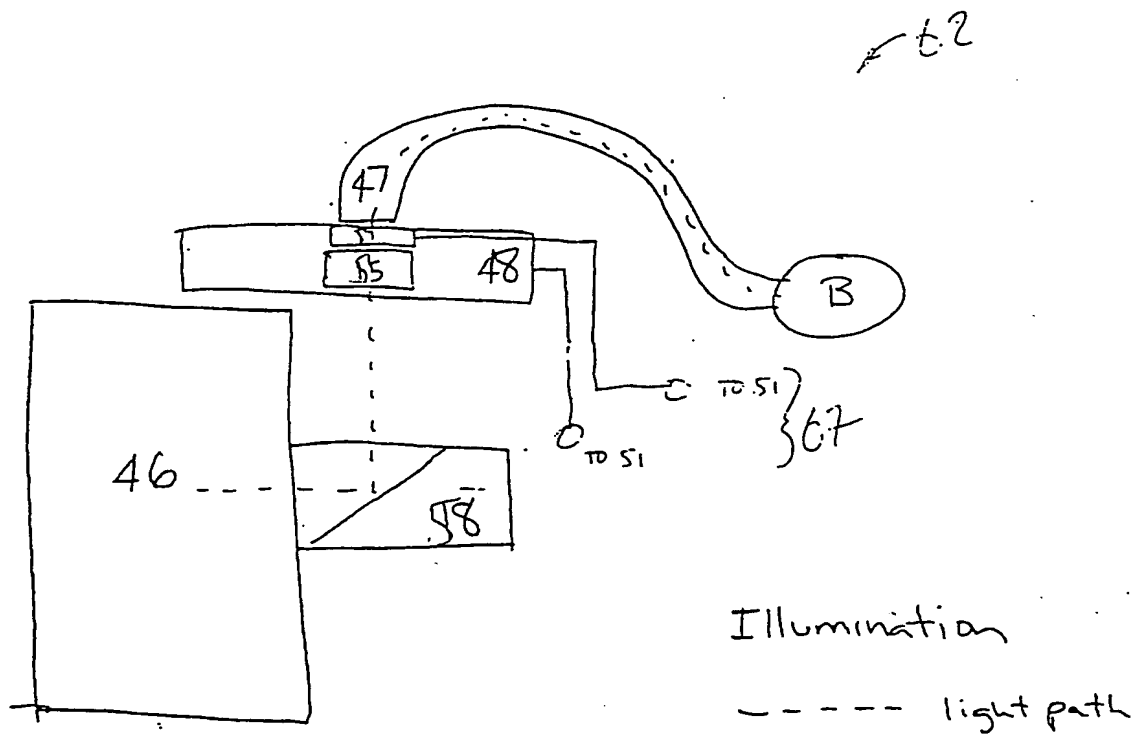 62
47
55
48
B
TO 51
67
TO 51
46
58
Illumination
light path